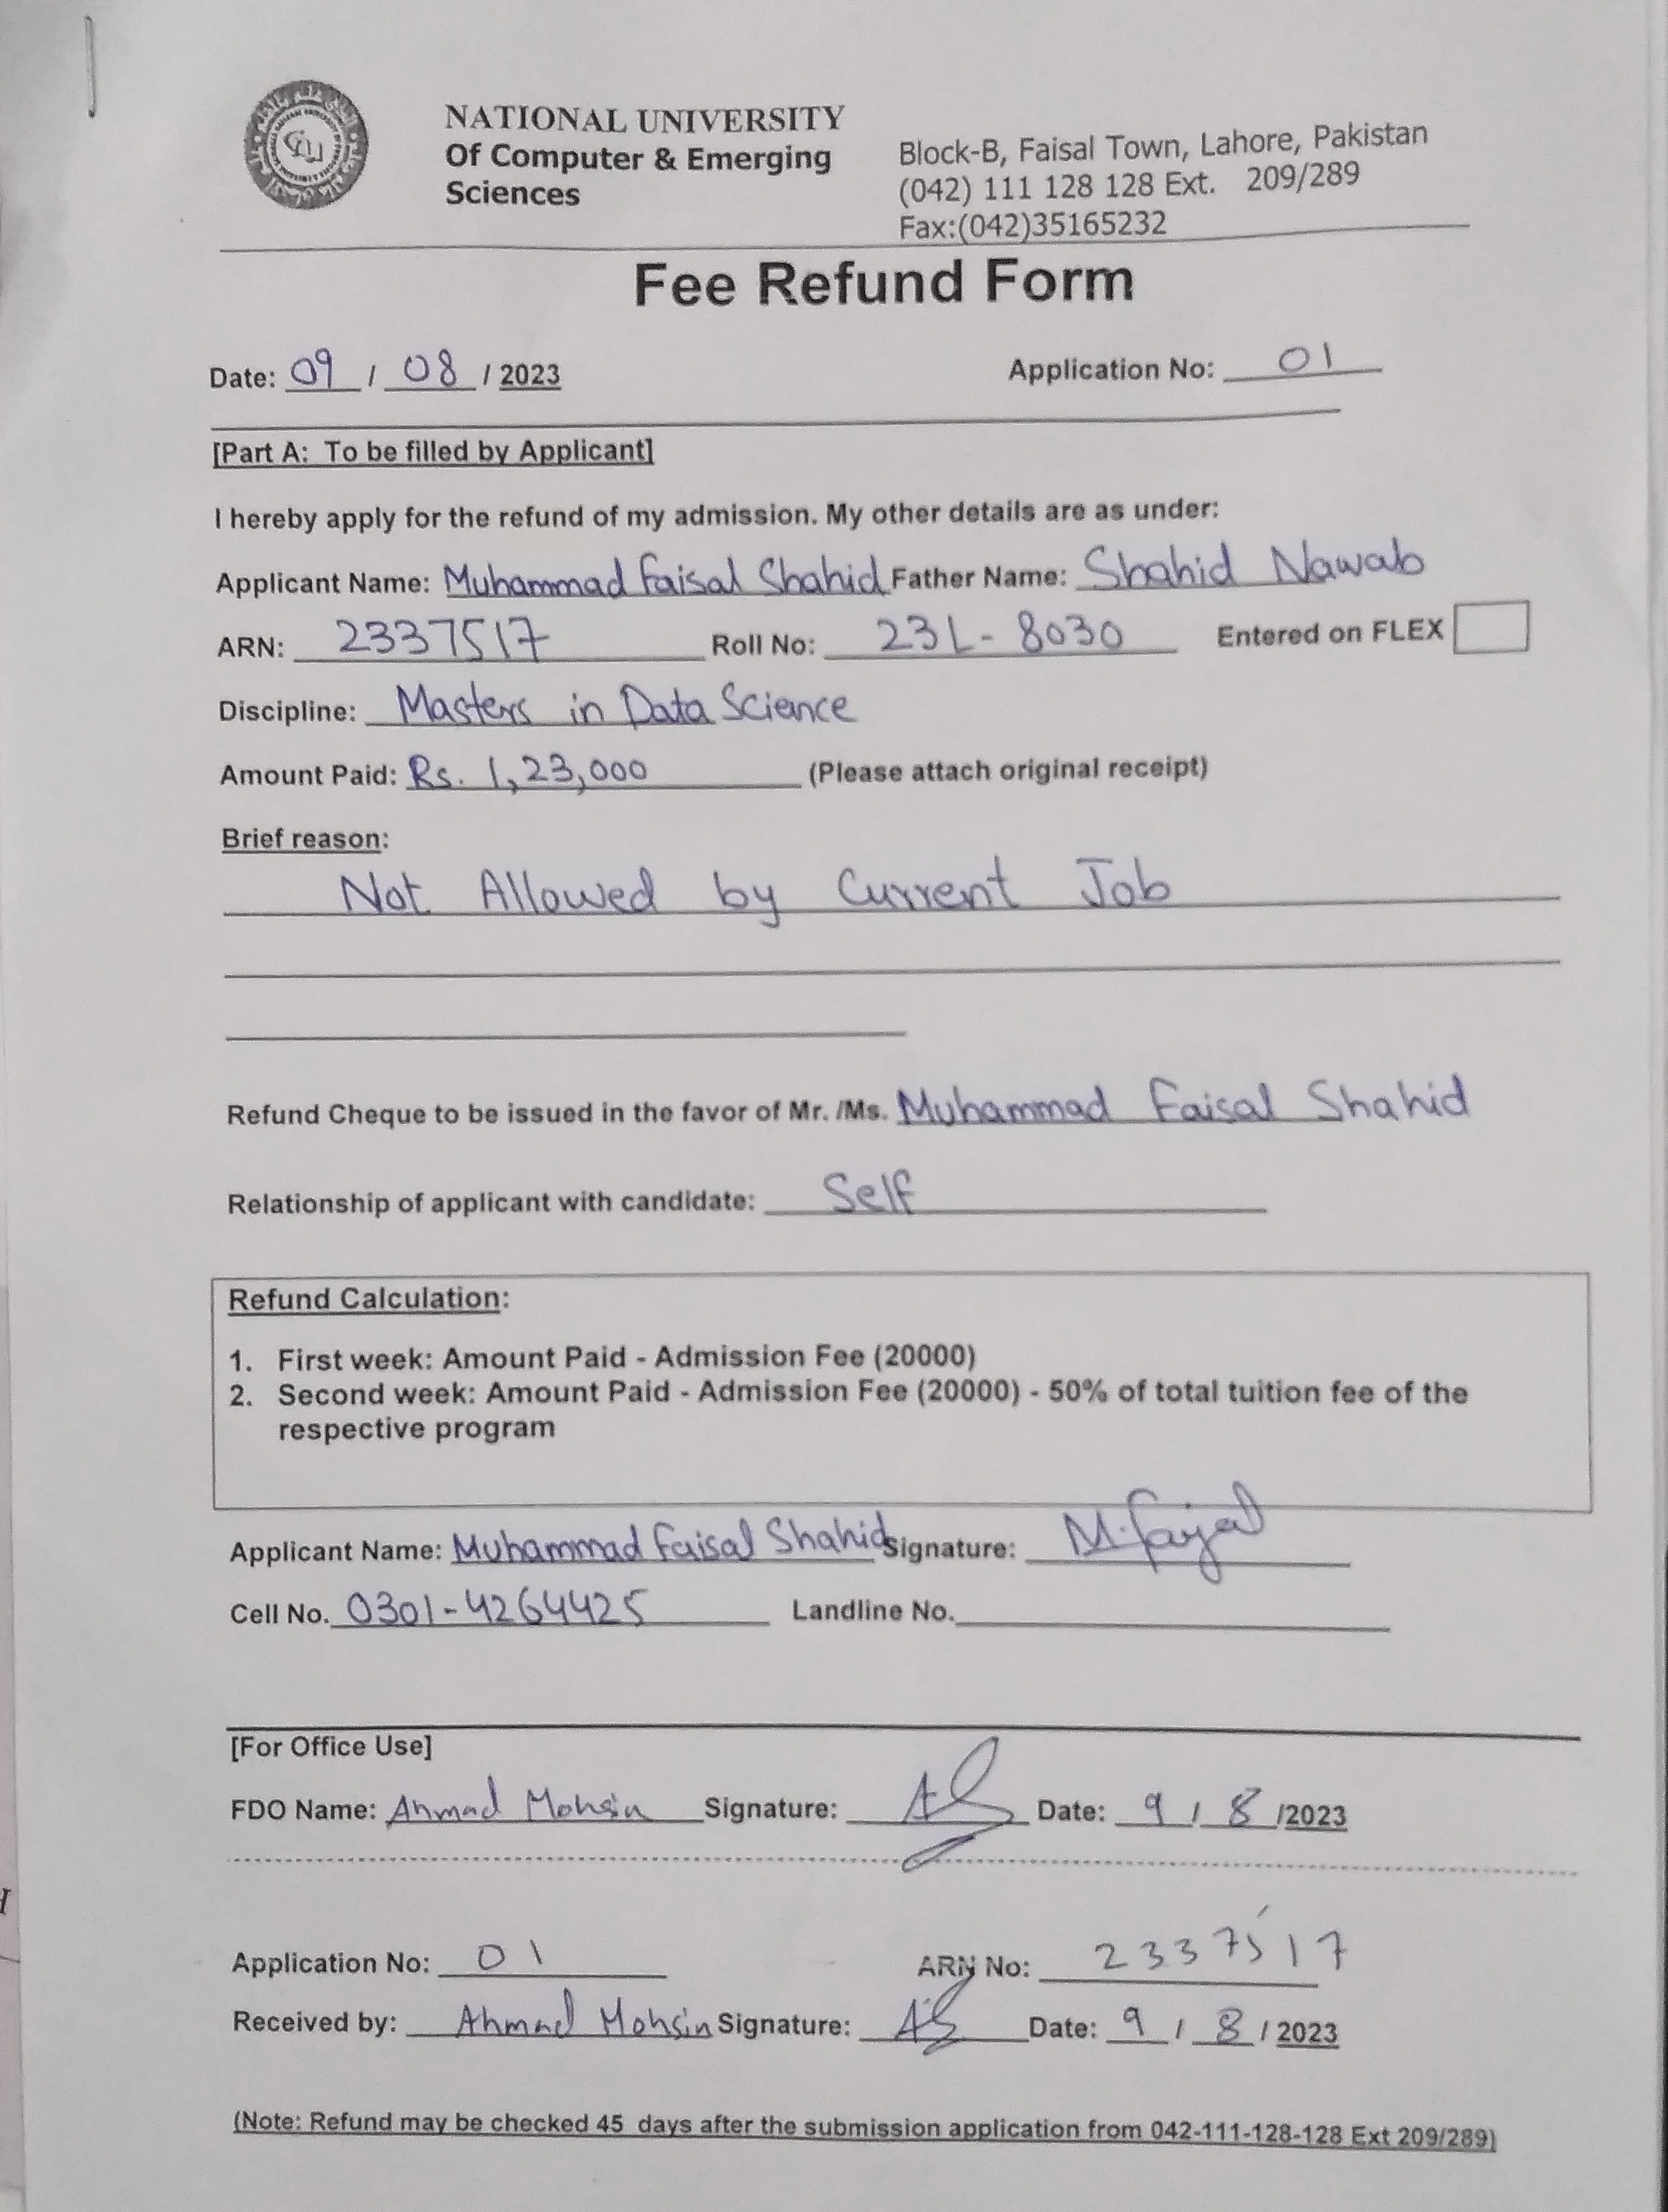 NATIONAL UNIVERSITY
Of Computer & Emerging
Sciences
Block-B, Faisal Town, Lahore, Pakistan
(042) 111 128 128 Ext. 209/289
Fax:(042)35165232
Fee Refund Form
Date: 09 / 08 / 2023 Application No: 01
[Part A: To be filled by Applicant]
I hereby apply for the refund of my admission. My other details are as under:
Applicant Name: Muhammad Faisal Shahid Father Name: Shahid Nawab
ARN: 2337517 Roll No: 23L-8030 Entered on FLEX
Discipline: Masters in Data Science
Amount Paid: Rs. 1,23,000 (Please attach original receipt)
Brief reason:
Not Allowed by Current Job
Refund Cheque to be issued in the favor of Mr. /Ms. Muhammad Faisal Shahid
Relationship of applicant with candidate: Self
Refund Calculation:
1. First week: Amount Paid - Admission Fee (20000)
2. Second week: Amount Paid - Admission Fee (20000) - 50% of total tuition fee of the
respective program
Applicant Name: Muhammad Faisal Shahid Signature: M.Faisal
Cell No. 0301-4264425 Landline No.
[For Office Use]
FDO Name: Ahmad Mohsin Signature: Date: 9 / 8 /2023
Application No: 01 ARN No: 2337517
Received by: Ahmad Mohsin Signature: Date: 9 / 8 / 2023
(Note: Refund may be checked 45 days after the submission application from 042-111-128-128 Ext 209/289)